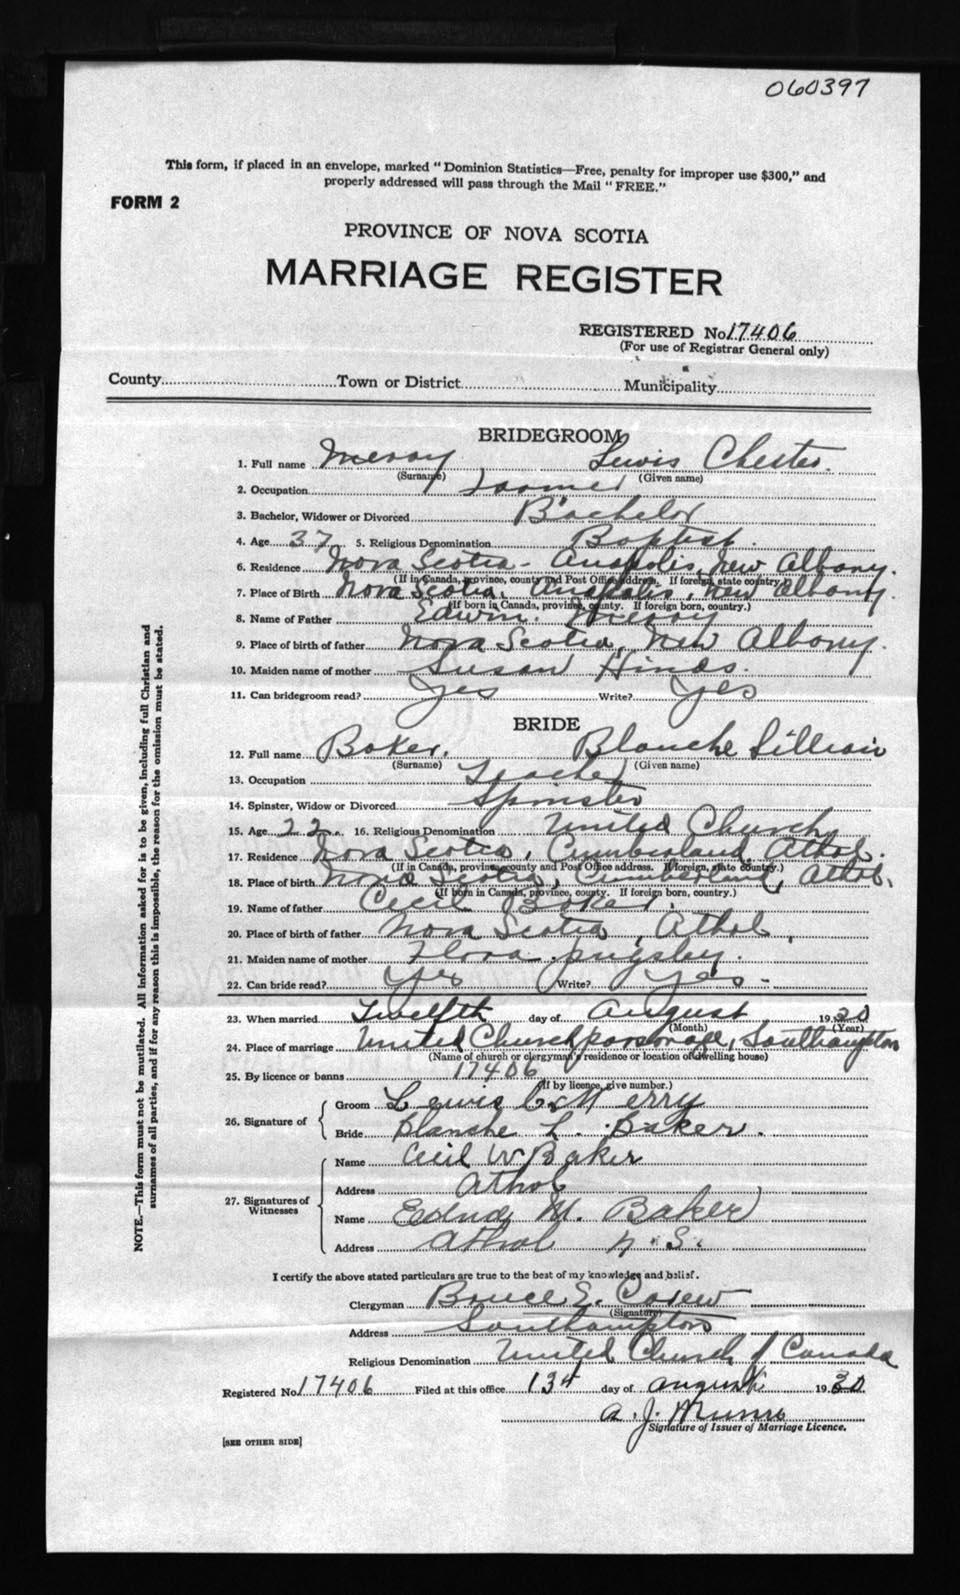 060397
This form, if placed in an envelope, marked "Dominion Statistics—Free, penalty for improper use $300," and
properly addressed will pass through the Mail "FREE."
FORM 2
PROVINCE OF NOVA SCOTIA
MARRIAGE REGISTER
REGISTERED No. 17406
(For use of Registrar General only)
County Town or District Municipality
BRIDEGROOM
1. Full name Merry Lewis Chester.
(Surname) (Given name)
2. Occupation Farmer
3. Bachelor, Widower or Divorced Bachelor
4. Age 37 5. Religious Denomination Baptist.
6. Residence Nova Scotia - Anapolis, New Albany.
(If in Canada, province, county and Post Office address. If foreign, state country.)
7. Place of Birth Nova Scotia, Anapolis, New Albany.
(If born in Canada, province, county. If foreign born, country.)
8. Name of Father Edwin Merry
9. Place of birth of father Nova Scotia, New Albany.
10. Maiden name of mother Susan Hinds.
11. Can bridegroom read? Yes Write? Yes
BRIDE
12. Full name Baker. Blanche Lillian
(Surname) (Given name)
13. Occupation Teacher
14. Spinster, Widow or Divorced Spinster
15. Age 22 16. Religious Denomination United Church
17. Residence Nova Scotia, Cumberland, Athol.
(If in Canada, province, county and Post Office address. If foreign, state country.)
18. Place of birth Nova Scotia, Cumberland, Athol.
(If born in Canada, province, county. If foreign born, country.)
19. Name of father Cecil Baker.
20. Place of birth of father Nova Scotia, Athol.
21. Maiden name of mother Flora Pugsley.
22. Can bride read? Yes Write? Yes -
23. When married Twelfth day of August 1930
(Month) (Year)
24. Place of marriage United Church parsonage, Southampton
(Name of church or clergyman's residence or location of dwelling house)
25. By licence or banns 17406
(If by licence, give number.)
26. Signature of
Groom Lewis C. Merry
Bride Blanche L. Baker.
27. Signatures of
Witnesses
Name Cecil W Baker
Address Athol
Name Edna M. Baker
Address Athol N.S.
I certify the above stated particulars are true to the best of my knowledge and belief.
Clergyman Bruce E.
(Signature)
Address Southampton
Religious Denomination United Church of Canada
Registered No. 17406 Filed at this office 13th day of August 1930
A. J. Munro
Signature of Issuer of Marriage Licence.
[SEE OTHER SIDE]
NOTE.—This form must not be mutilated. All information asked for is to be given, including full Christian and
surnames of all parties, and if for any reason this is impossible, the reason for the omission must be stated.